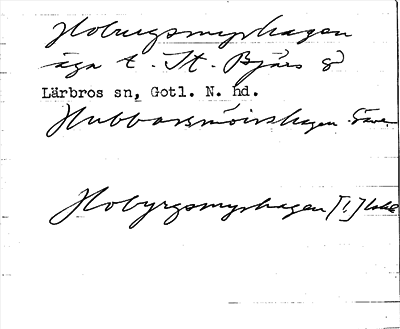 Hoburgsmyrhagen
äga t. St. Bjärs 8
Lärbros sn, Gotl. N. hd.
Hubbarsmöirshagen
Hobyrgsmyrhagen [!]